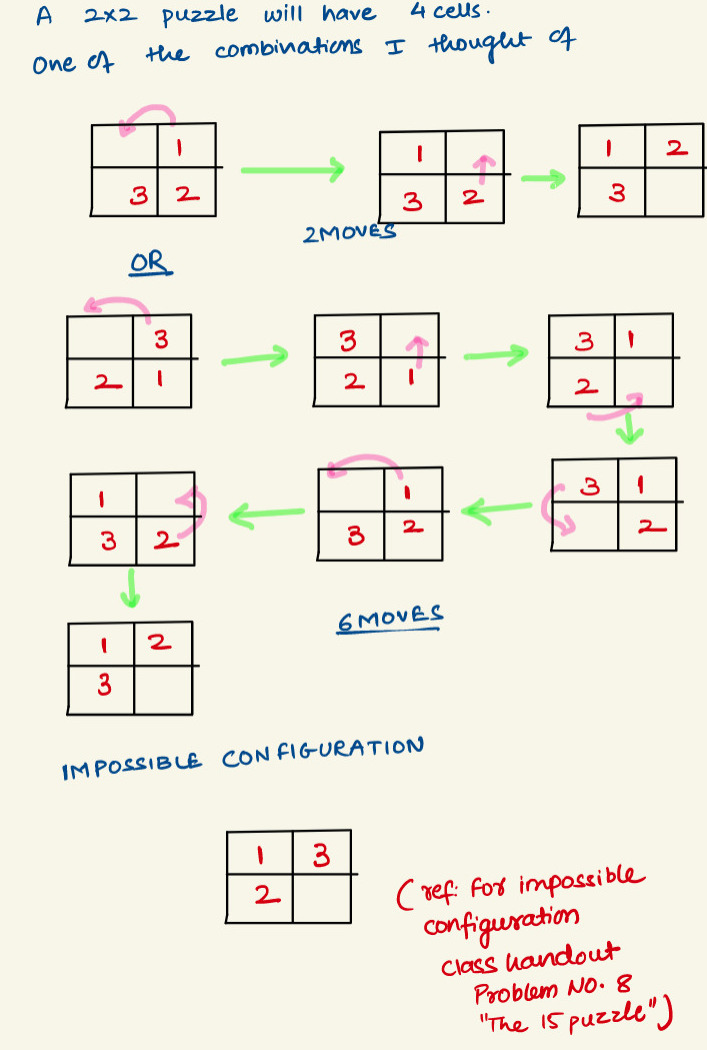 A 2x2 puzzle will have 4 cells.
One of the combinations I thought of
1 1 1 2
3 2 3 2 3
2MOVES
OR
3 3 3 1
2 1 2 1 2
1 1 3 1
3 2 3 2 2
6 MOVES
1 2
3
IMPOSSIBLE CONFIGURATION
1 3
2
(ref: For impossible
configuration
class handout
Problem NO. 8
"The 15 puzzle")